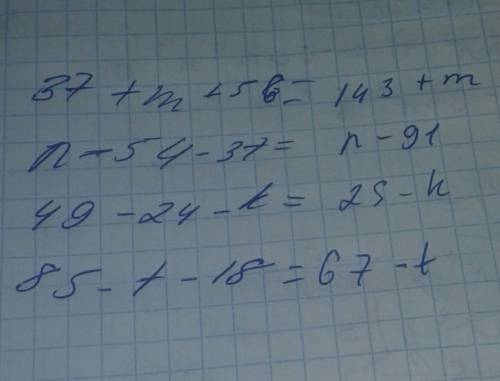 37 + m + 56 = 143 + m
n - 54 - 37 = n - 91
49 - 24 - k = 25 - k
85 - t - 18 = 67 - t